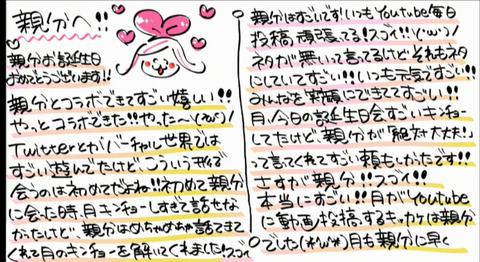 親分へ!!
親分お誕生日
おめでとうございます!!
親分とコラボできてすごい嬉しい!!
やっとコラボできた!!やった〜(ねび)ノ
Twitterとかバーチャル世界では
すごい遊んでたけど、こういう形で
会うのは初めてだよね!!初めて親分
に会った時、月キンチョーしすぎて話せな
かったけど、親分はめちゃめちゃ話てき
くれて月のキンチョーを解いてくれました!!スゴイ
親分はすごいです!いつもYoutube毎日
投稿頑張ってる!スゴイ!!('ω')ノ
ネタが無いって言ってるけどそれもネタ
にしていてすごい!!いつも元気ですごい!!
みんなを笑顔にできててすごい!!
月、今日の誕生日会すごいキンチョー
してたけど、親分が「絶対大丈夫!」
って言ってくれてすごい頼もしかったです!!
さすが親分!!スゴイ!!
本当にすごい!!月がYoutube
に動画投稿するキッカケは親分
でした 月も親分に早く